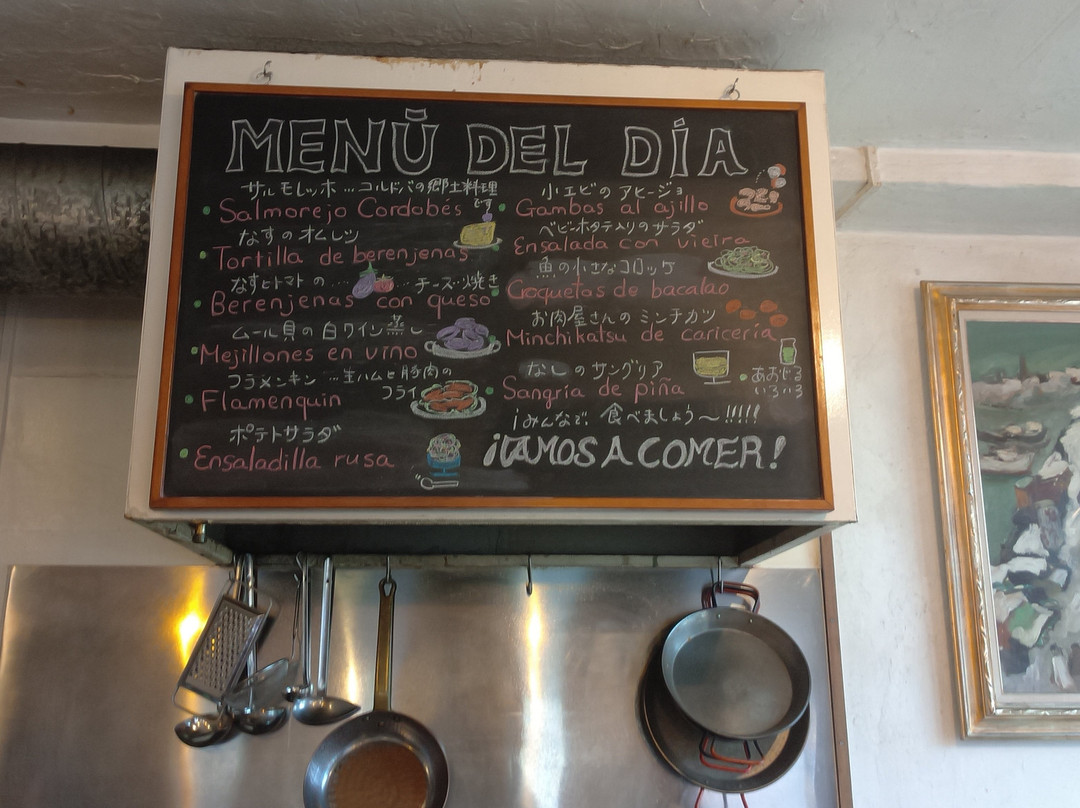 MENŪ DEL DÍA
サルモレッホ…コルドバの郷土料理です
Salmorejo Cordobés
なすのオムレツ
Tortilla de berenjenas
なすとトマトの……チーズ焼き
Berenjenas con queso
ムール貝の白ワイン蒸し
Mejillones en vino
フラメンキン…生ハムと豚肉のフライ
Flamenquin
ポテトサラダ
Ensaladilla rusa
小エビのアヒージョ
Gambas al ajillo
ベビーホタテ入りのサラダ
Ensalada con vieira
魚の小さなコロッケ
Croquetas de bacalao
お肉屋さんのミンチカツ
Minchikatsu de caricería
なしのサングリア
Sangria de piña
あおじる
いろいろ
¡みんなで、食べましょう〜!!!!!
¡VAMOS A COMER!